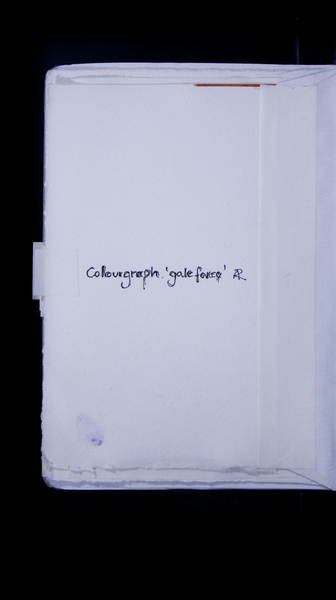 Collourgraph. 'gale force' AR